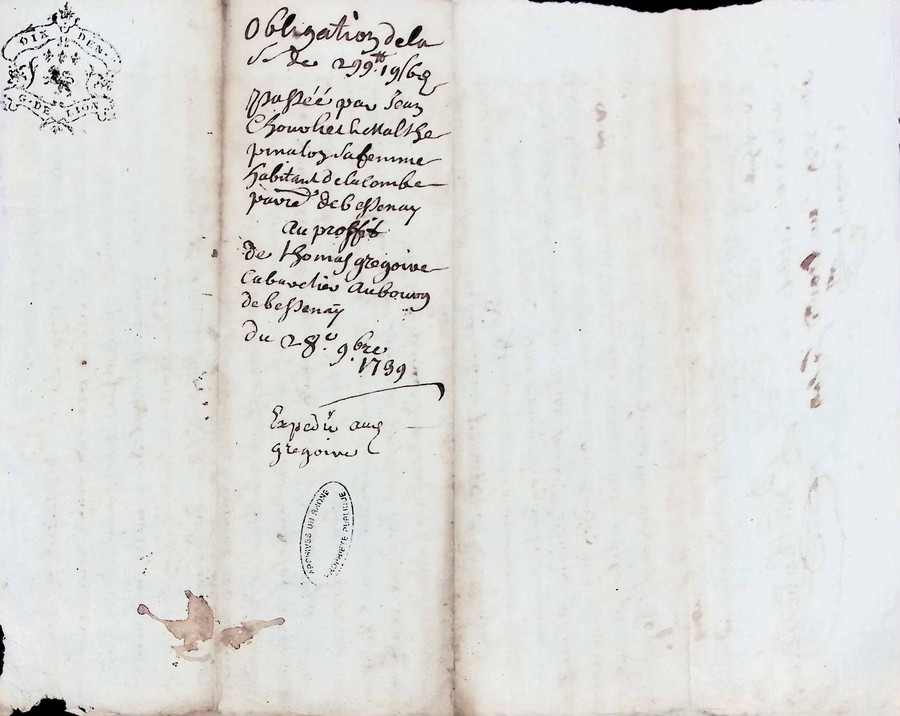 DIX DEN.
G. DE LION
Obligation de la
S.e de 299tt 19s 6d
passée par Jean
Chouvliet & Malthe
pinaloz sa femme
habitant de la Combe
parre. de bessenay
au proffit
de thomas gregoire
Cabaretier au bourg
de bessenay
du 28.e 9.bre
1739
Expedié aud
gregoire
ARCHIVES DU RHONE
PROPRIÉTÉ PUBLIQUE